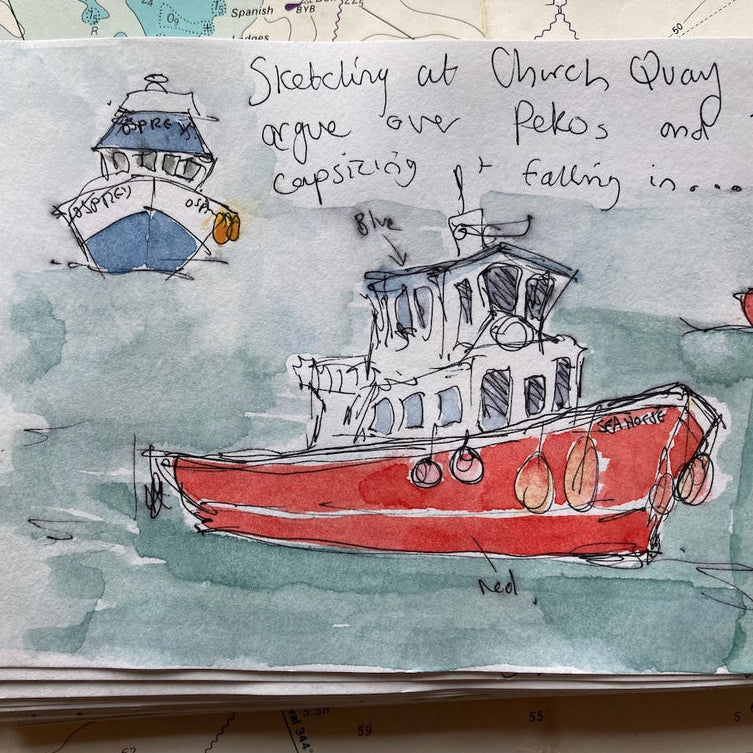 Spanish
BYB
225
24
Og
R
Ledges
50
Sketching at Church Quay
argue over Pekos and
capsizing + falling in...
OSPREY
OSPREY
OSP
Blue
SEAHORSE
Red
59
55
S
62
344°